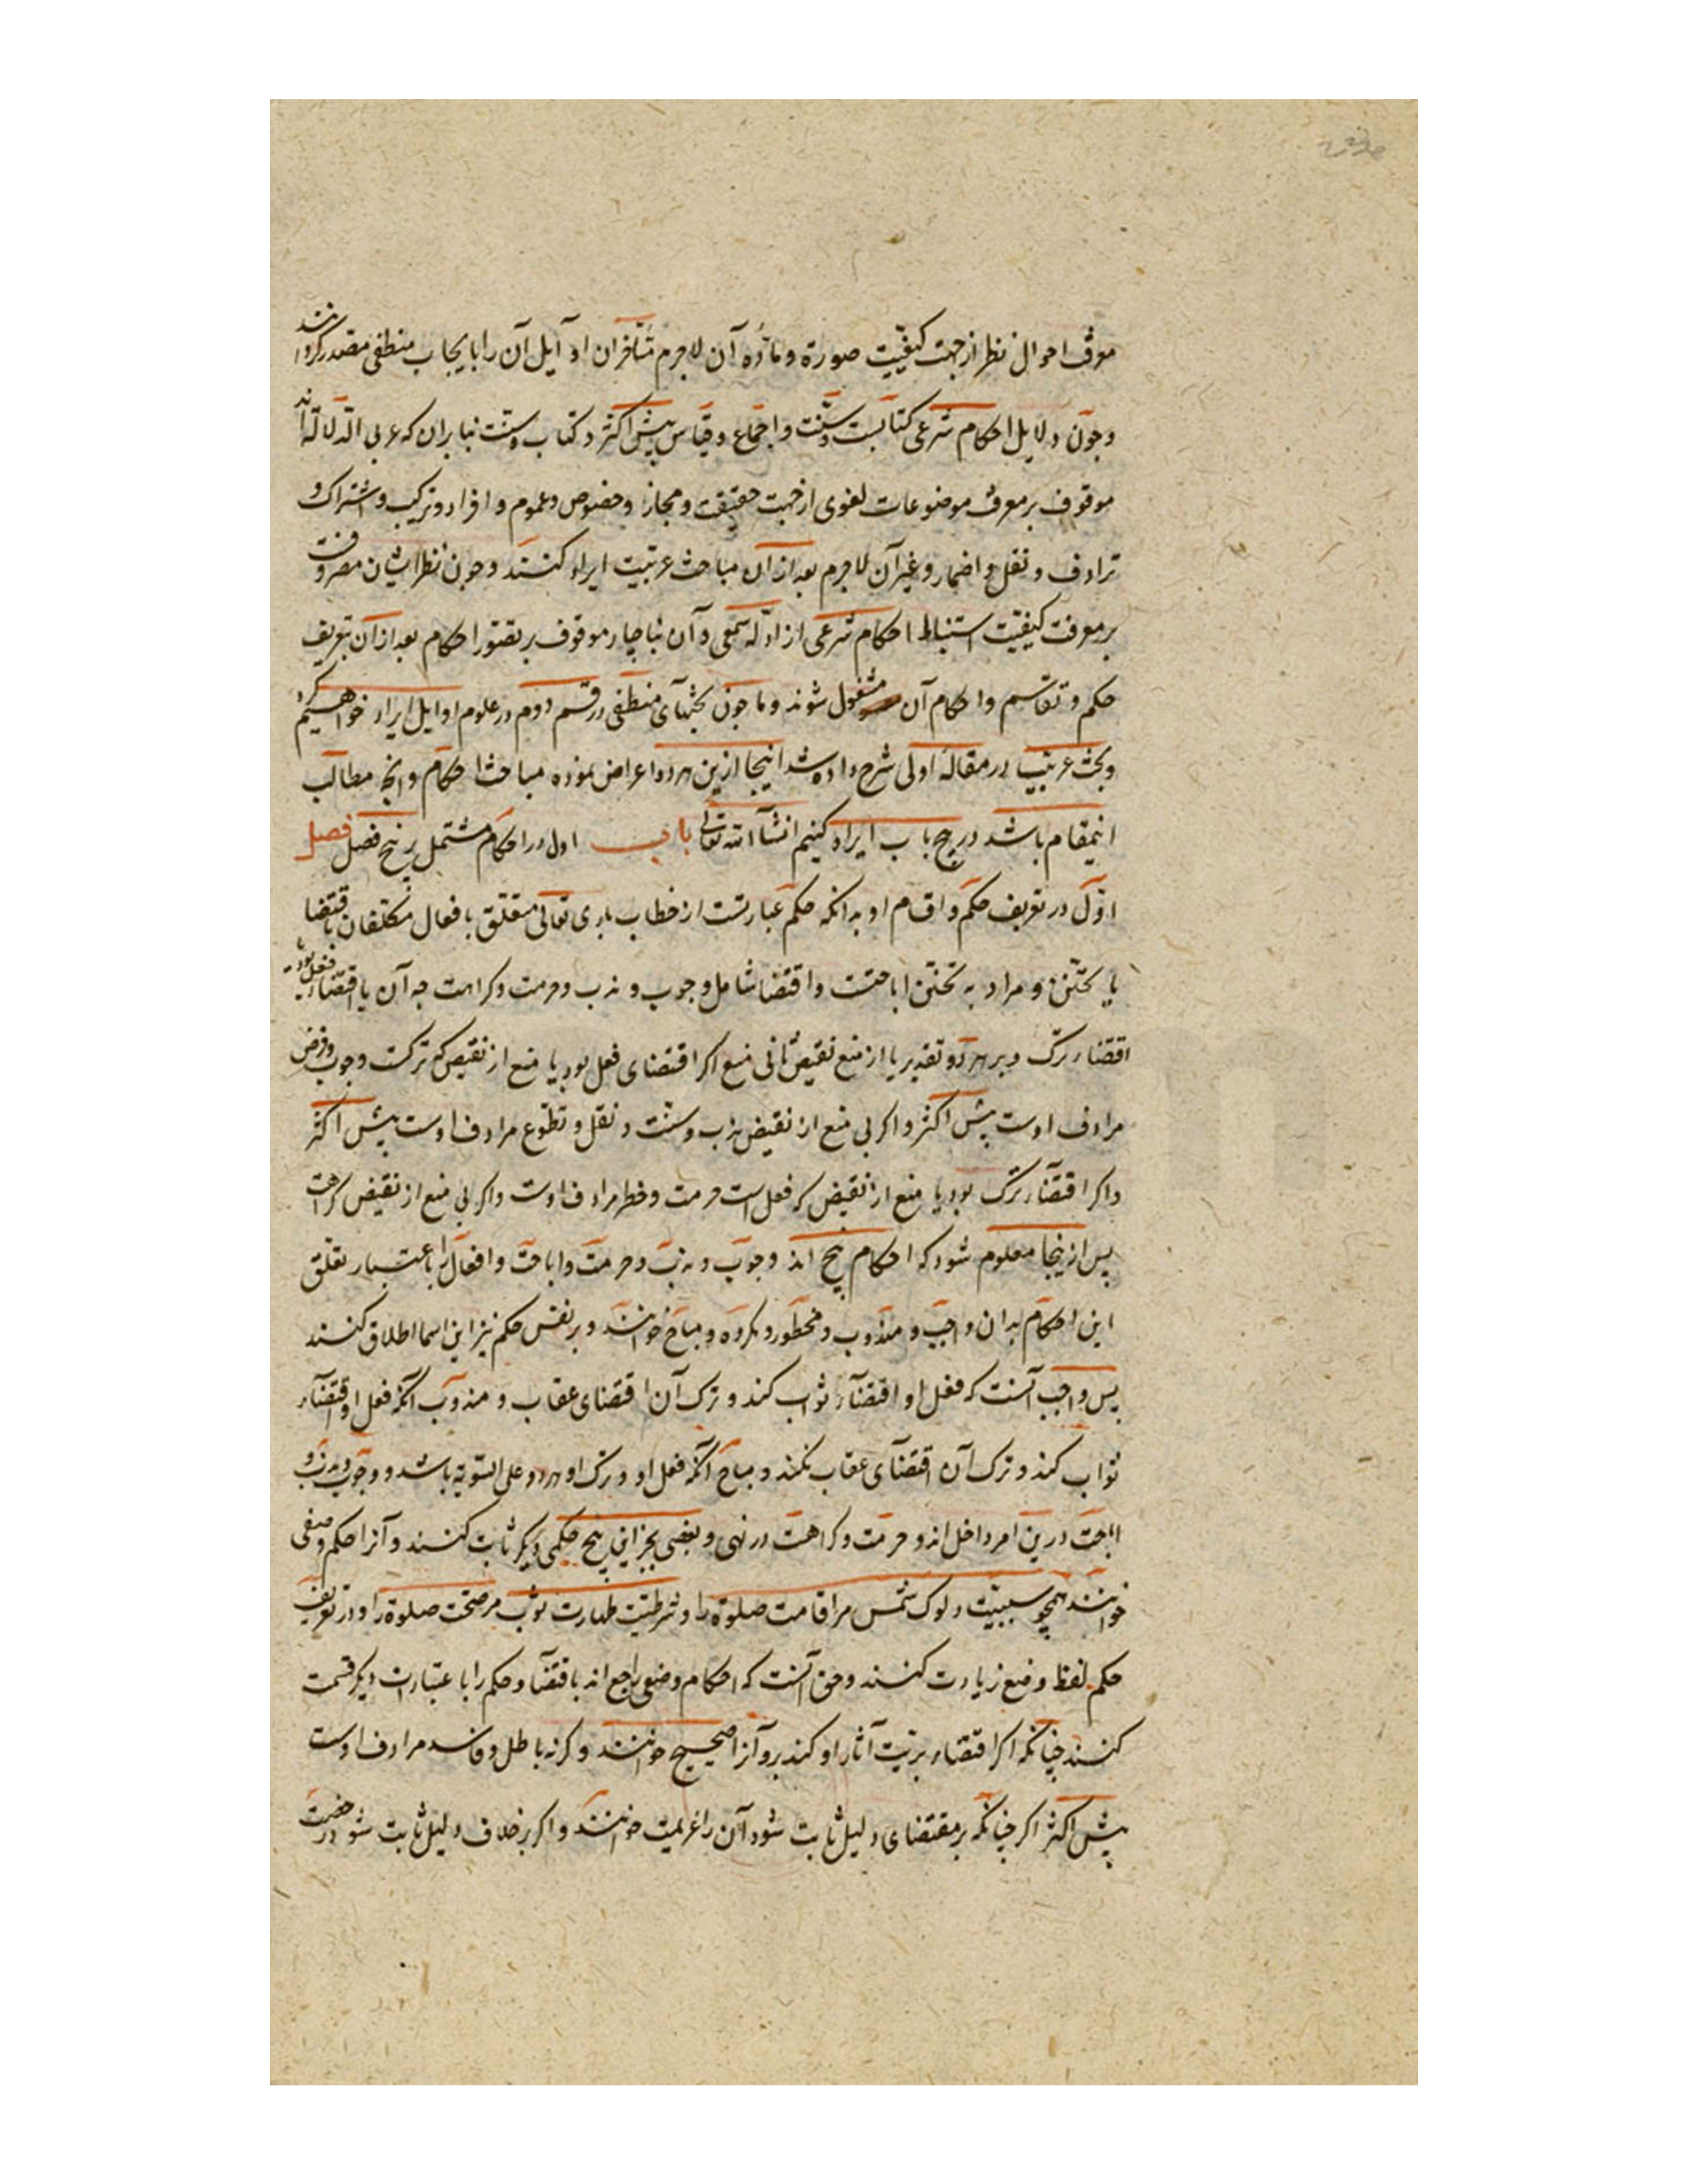 معرفت احوال نظر از جهت کیفیّت صورة و مادّه آن لاجرم متأخران اوایل آن را بابحاث منطقی مصدر کردانند
و چون دلایل احکام شرعی کتابست و سنّت و اجماع و قیاس پیش اکثر و کتاب و سنت بنابران که عربی الدّلالة اند
موقوف بر معرفت موضوعات لغوی از جهت حقیقت و مجاز و خصوص و عموم و افراد و ترکیب و اشتراک و
ترادف و نقل و اضمار و غیر آن لاجرم بعد از آن مباحث عربیّت ایراد کنند و چون نظر ایشان مصروفست
بر معرفت کیفیّت استنباط احکام شرعی از ادلّه سمعی و آن بناچار موقوف بر تصّور احکام بعد از آن بتعریف
حکم و تقاسیم و احکام آن مشغول شوند و ما چون بحثهآی منطقی در قسم دوم در علوم اوایل ایراد خواهیم کرد
و بحث عربیت در مقالهٔ اولی شرح داده شد اینجا ازین هردو اعراض نموده مباحث احکام و آنچه مطالب
اینمقام باشد در پنج باب ایراد کنیم انشآالله تعالی باب اول در احکام مشتمل بر پنج فصل فصل
اوّل در تعریف حکم و اقسام او بدانکه حکم عبارتست از خطاب باری تعالی متعلّق بافعال مکلّفان باقتضا
یا تخیّر و مراد به تخیّر اباحتست و اقتضا شامل وجوب و ندب و حرمت و کراهت چه آن یا اقتضاء فعل بود یا
اقتضاء ترک و بر هر دو تقدیر یا از منع نقیض ثانی منع اکر اقتضای فعل بود با منع از نقیض که ترکست وجوب و فرض
مرادف اوست پیش اکثر و اکر بی منع از نقیض ندب و سنّت و نفل و تطوّع مرادف اوست پیش اکثر
و اکر اقتضآء ترک بود با منع از نقیض که فعل است حرمت و حظر مرادف اوست و اکر بی منع از نقیض کراهت
پس ازینجا معلوم شود که احکام پنج اند وجوب و ندب و حرمت و اباحت و افعال را باعتبار تعلّق
این احکام بدان واجب و مندوب و محظور و مکروه و مباح خوانند و بر نفس حکم نیز این اسما اطلاق کنند
پس واجب آنست که فعل او اقتضآء ثواب کند و ترک آن اقتضای عقاب و مندوب آنکه فعل او اقتضآء
ثواب کند و ترک آن اقتضآی عقاب نکند و مباح آنکه فعل او و ترک او هردو علی السّویّه باشد و وجوب و ندب و
اباحت درین امر داخل اند و حرمت و کراهت در نهی و بعضی بجز این پنج حکمی دیکر ثابت کنند و آنرا حکم وضعی
خوانند همچو سببیّت دلوک شمس مر اقامت صلوة را و شرطیّت طهارت ثوب مر صحّت صلوة را و در تعریف
حکم لفظ وضع زیادت کنند و حق آنست که احکام وضعی راجع اند باقتضآء و حکم را باعتبارات دیکر قسمت
کنند چنانکه اکر اقتضاء برتیت آثار او کند برو آنرا صحیح خوانند و کرنه باطل و فاسد مرادف اوست
پیش اکثر اکر چنانکه بر مقتضای دلیل ثابت شود آن را عزیمت خوانند و اکر بر خلاف دلیل ثابت شود رخصت